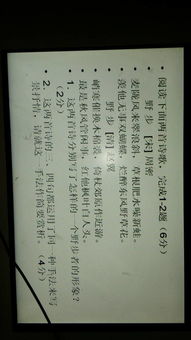 阅读下面两首诗歌，完成1-2题（6分）
野步 [宋] 周密
麦陇风来翠浪斜，草根肥水噪新蛙。
羡他无事双蝴蝶，烂醉东风野草花。
野步 [清] 赵翼
峭寒催换木棉裘，倚杖郊原作近游。
最是秋风管闲事，红他枫叶白人头。
1、这两首诗分别写了怎样的一个野步者的形象？
（2分）
2、这两首诗的三、四句都运用了同一种手法来写
景抒情，请就这一手法作简要赏析。（4分）